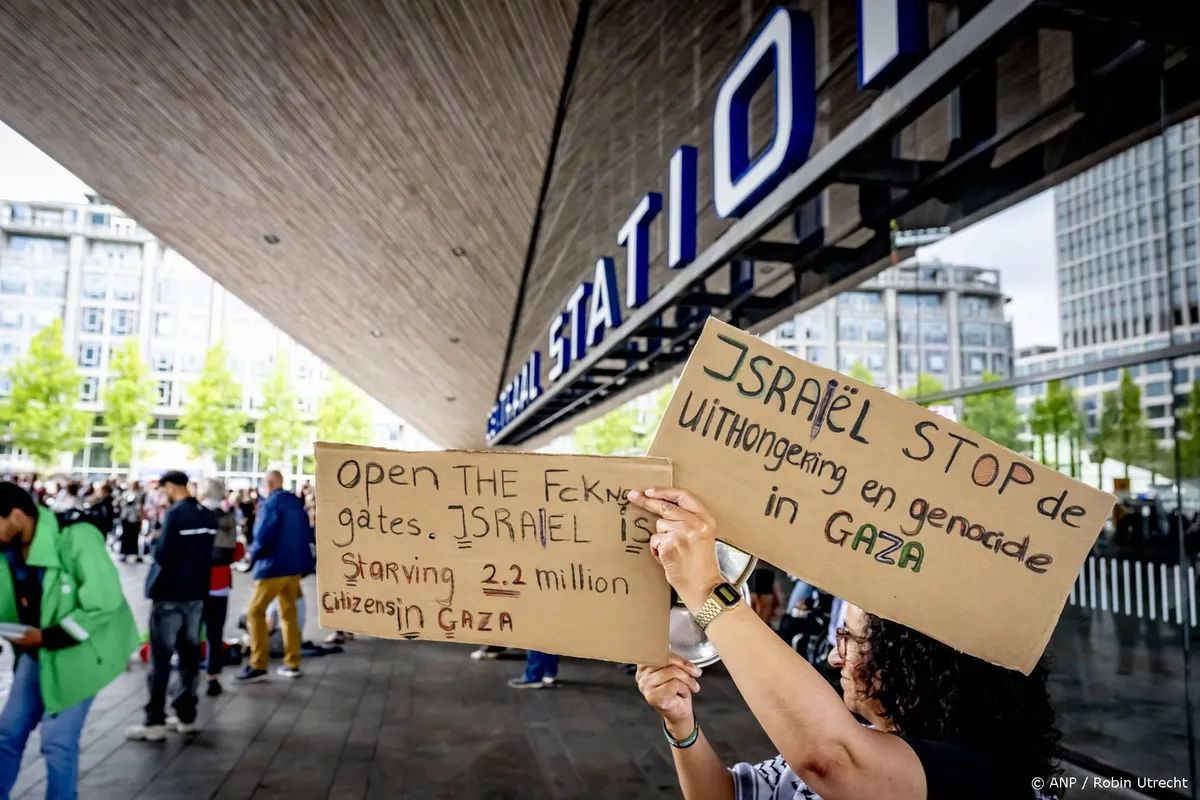 CENTRAAL STATION
OPEN THE FCKNG
gates. ISRAEL is
Starving 2.2 million
Citizens in GAZA
ISRAËL STOP de
UITHONGERING en genocide
in GAZA
© ANP / Robin Utrecht